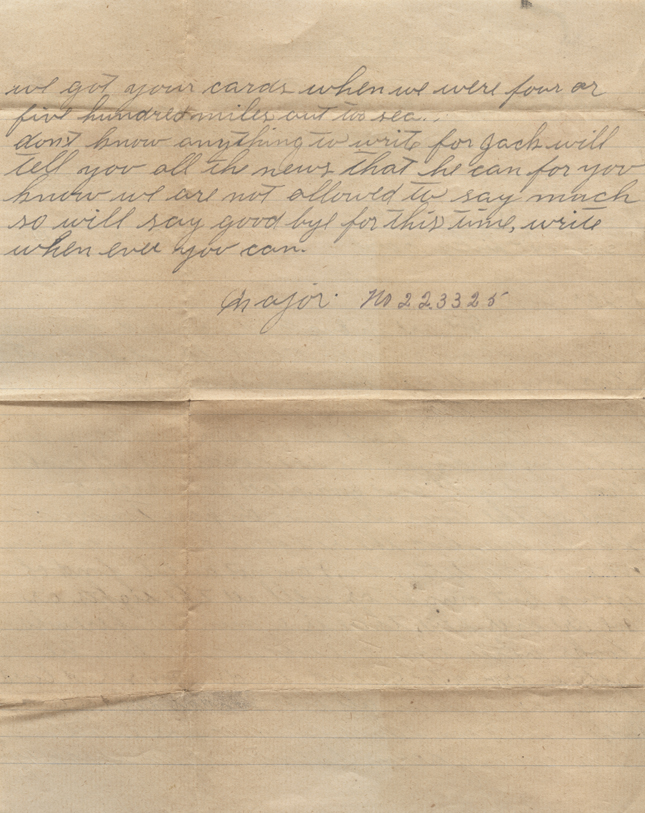 we got your cards when we were four or
five hundred miles out to sea..
don't know anything to write for Jack will
tell you all the news that he can for you
know we are not allowed to say much
so will say good bye for this time, write
when ever you can.
Major. No 223325